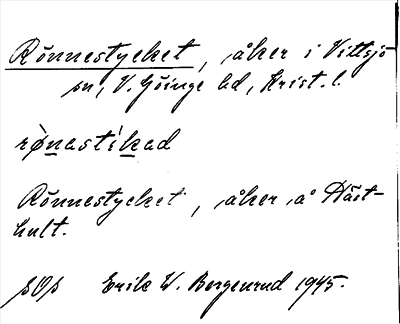 Rönnestycket, åker i Vittsjö
sn, V. Göinge hd, Krist. l.
rø̀nastíkad
Rönnestycket, åker å Häst-
hult.
Erik W. Bergenrud 1945.